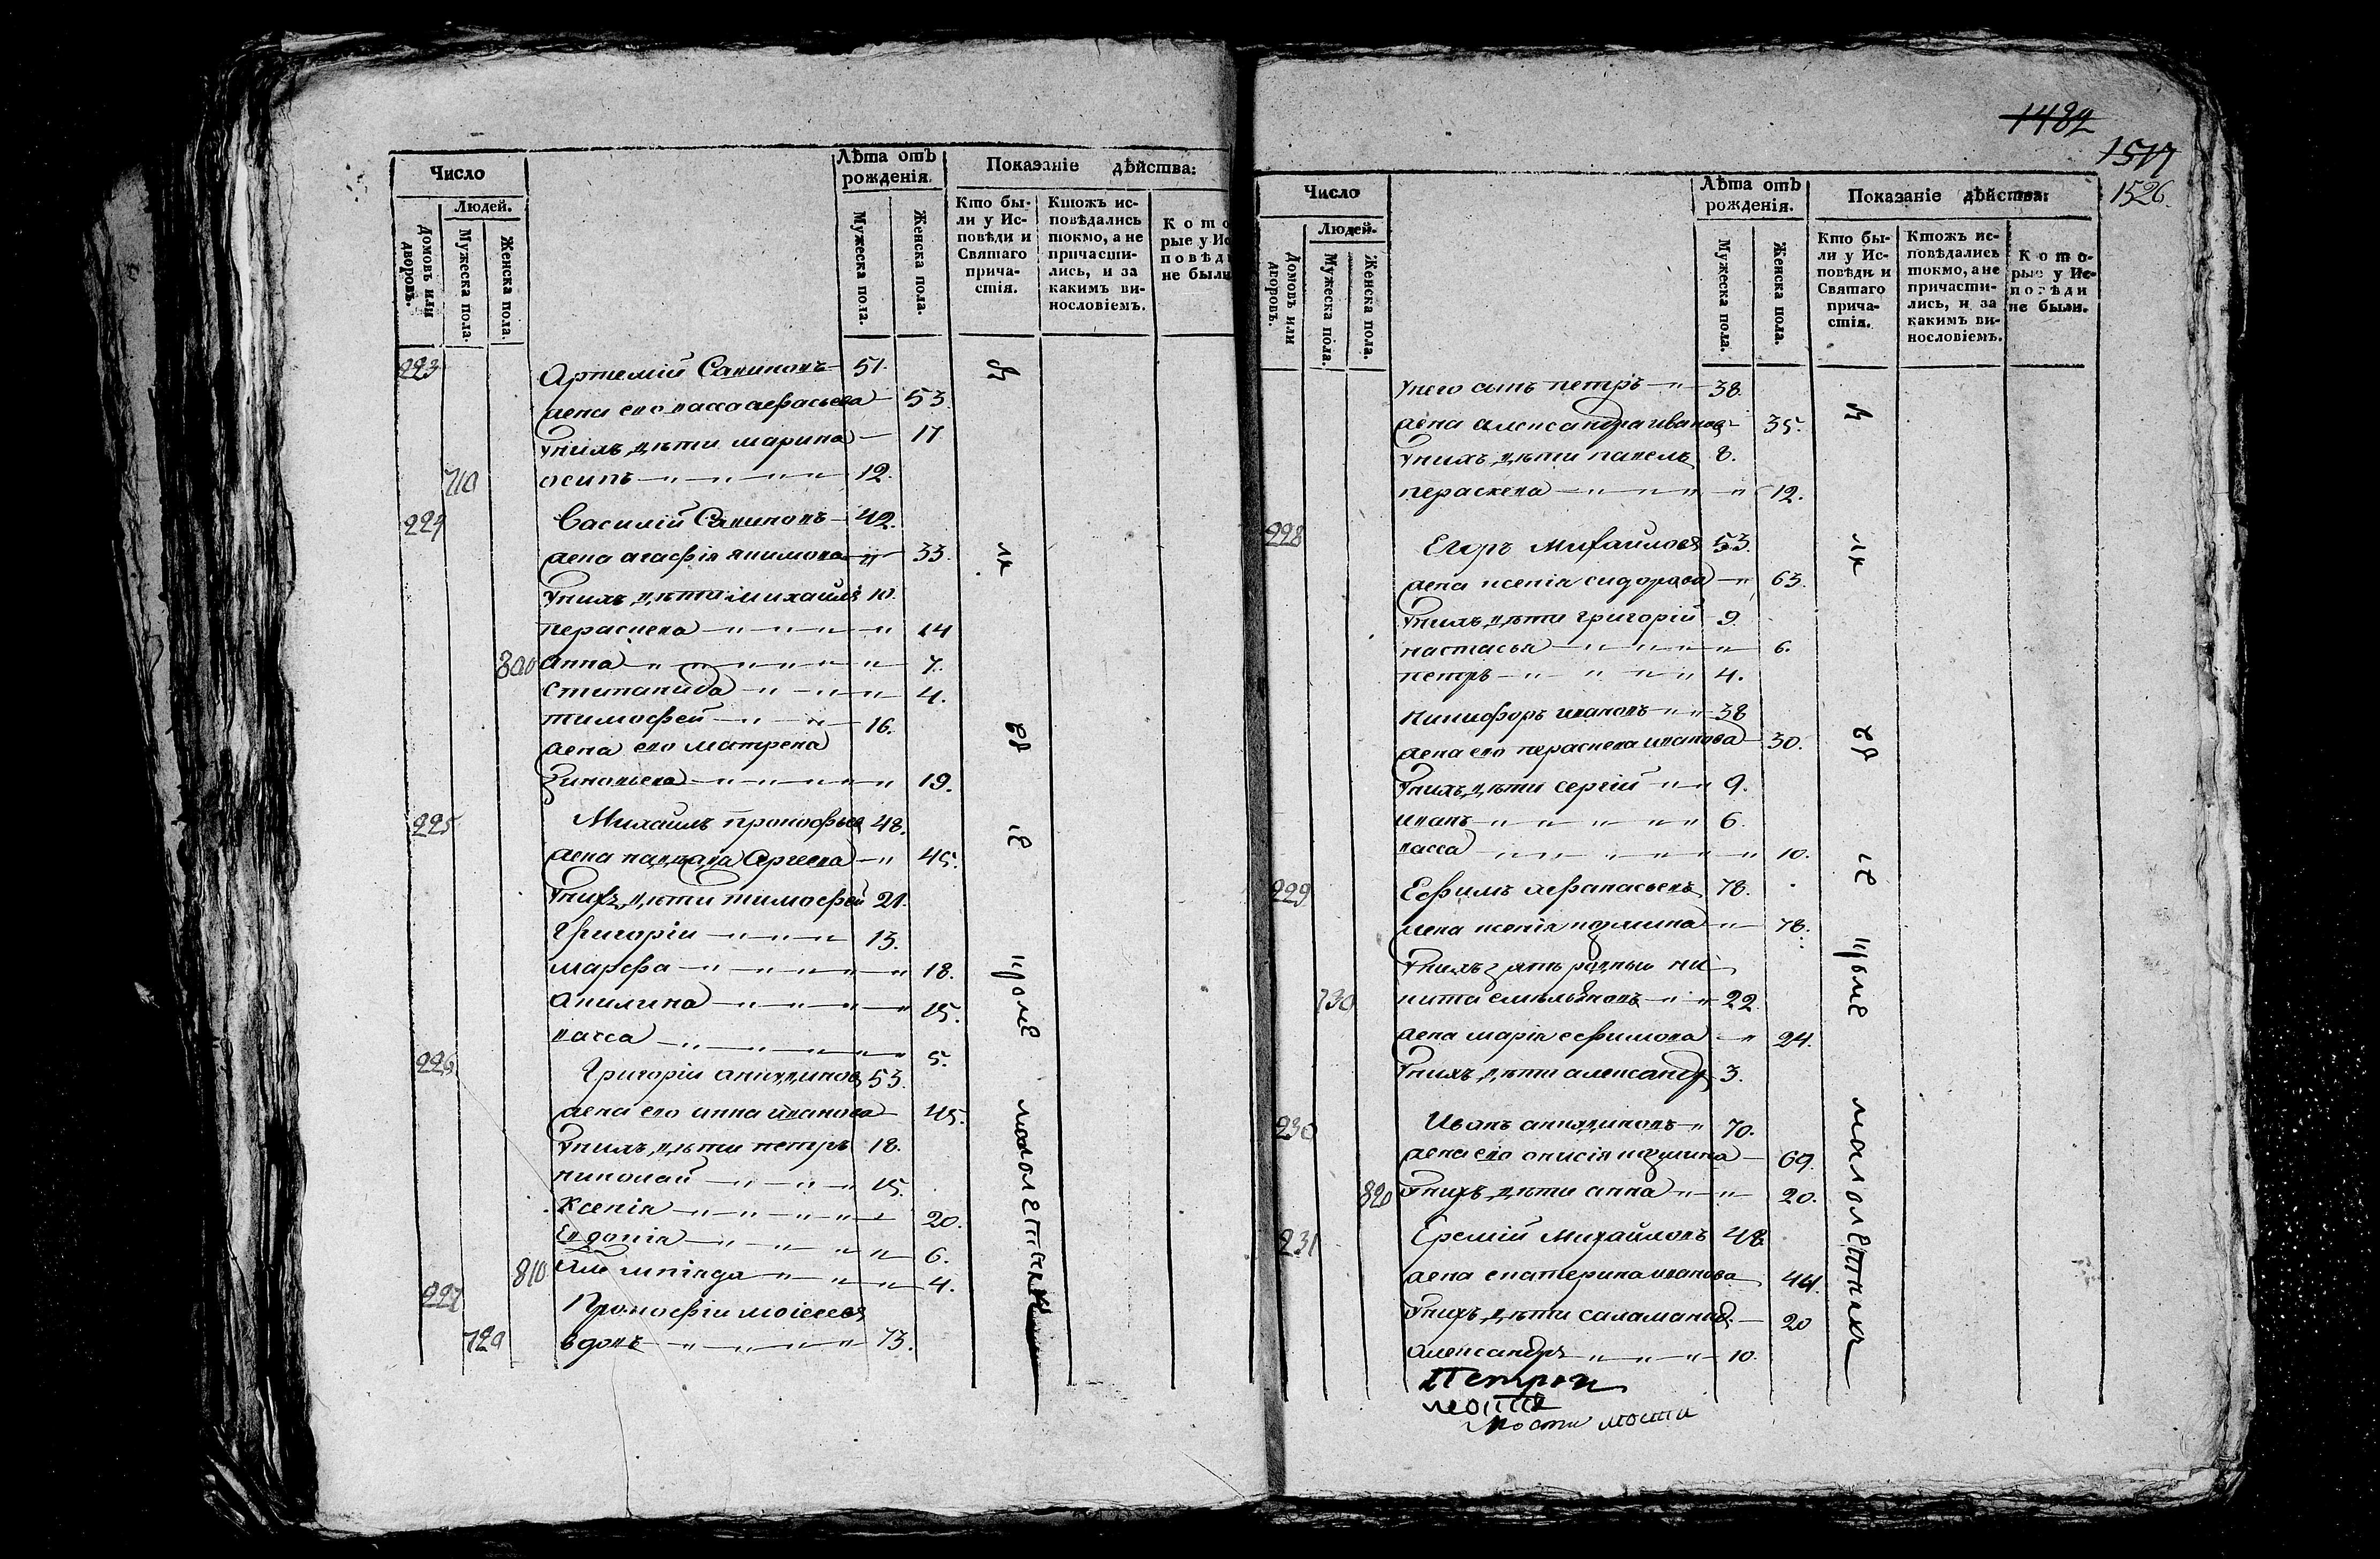 Число
Людей.
Домовъ или дворовъ.
Мужеска пола.
Женска пола.
Лѣта отъ рожденія.
Мужеска пола.
Женска пола.
Показаніе дѣйства:
Кто бы-
ли у Ис-
повѣди и
Святаго
прича-
стія.
Ктожъ ис-
повѣдались
токмо, а не
причасти-
лись, и за
какимъ ви-
нословіемъ.
К о т о
рые у Ис
п о в ѣ д
не были
223 Артемій Савиновъ 51.
жена его васса аефасьева 53
Уних дѣти марина 17
710 осипъ 12.
224 Василій Савиновъ 42.
жена агафія якимова 33.
Унихъ дѣти михайлъ 10.
перасковa 14
800 анна 7.
степанида 4.
тимофей 16.
жена его матрена
зиновьева 19.
225 Михаилъ прокофьев 48.
жена Сергеева 45.
Унихъ дѣти тимофей 21.
Григорій 13.
марфа 18.
акилина 15.
васса 5.
226 Григорій 53.
жена его анна иванова 45.
Унихъ дѣти петръ 18.
николай 15.
Ксенія 20.
Евдокія 6.
810 4.
227 Прокофій моисеев
720 вдовъ 73.
кромѣ
малолетныхъ
1482
1517
1526.
Число
Людей.
Домовъ или дворовъ.
Мужеска пола.
Женска пола.
Лѣта отъ рожденія.
Мужеска пола.
Женска пола.
Показаніе дѣйства:
Кто бы-
ли у Ис-
повѣди и
Святаго
прича-
стія.
Ктожъ ис-
повѣдались
токмо, а не
причасти-
лись, и за
какимъ ви-
нословіемъ.
К о т о-
рые у Ис-
п о в ѣ д и
не были.
Унего сынъ петръ 38.
жена александра иванов 35.
Унихъ дѣти павелъ 8.
перасковa 12.
228 Егоръ Михайлов 53.
жена ксенія сидорова 63.
Унихъ дѣти григорій 9.
настасья 6.
петръ 4.
Никифоръ ивановъ 38
жена его перасковa иванова 30.
Унихъ дѣти сергій 9.
иванъ 6.
васса 10.
229 Ефимъ аефанасьевъ 78.
жена ксенія козмина 78.
Унихъ зять родный ни
730 кита емельяновъ 22.
жена марія ефимова 24.
Унихъ дѣти александр 3.
230 Иванъ 70.
жена его анисія козмина 69.
820 Унихъ дѣти анна 20.
231 Еремій Михайловъ 48.
жена екатерина иванова 44.
Унихъ дѣти саламанид 20
Александръ 10.
кромѣ
малолетныхъ